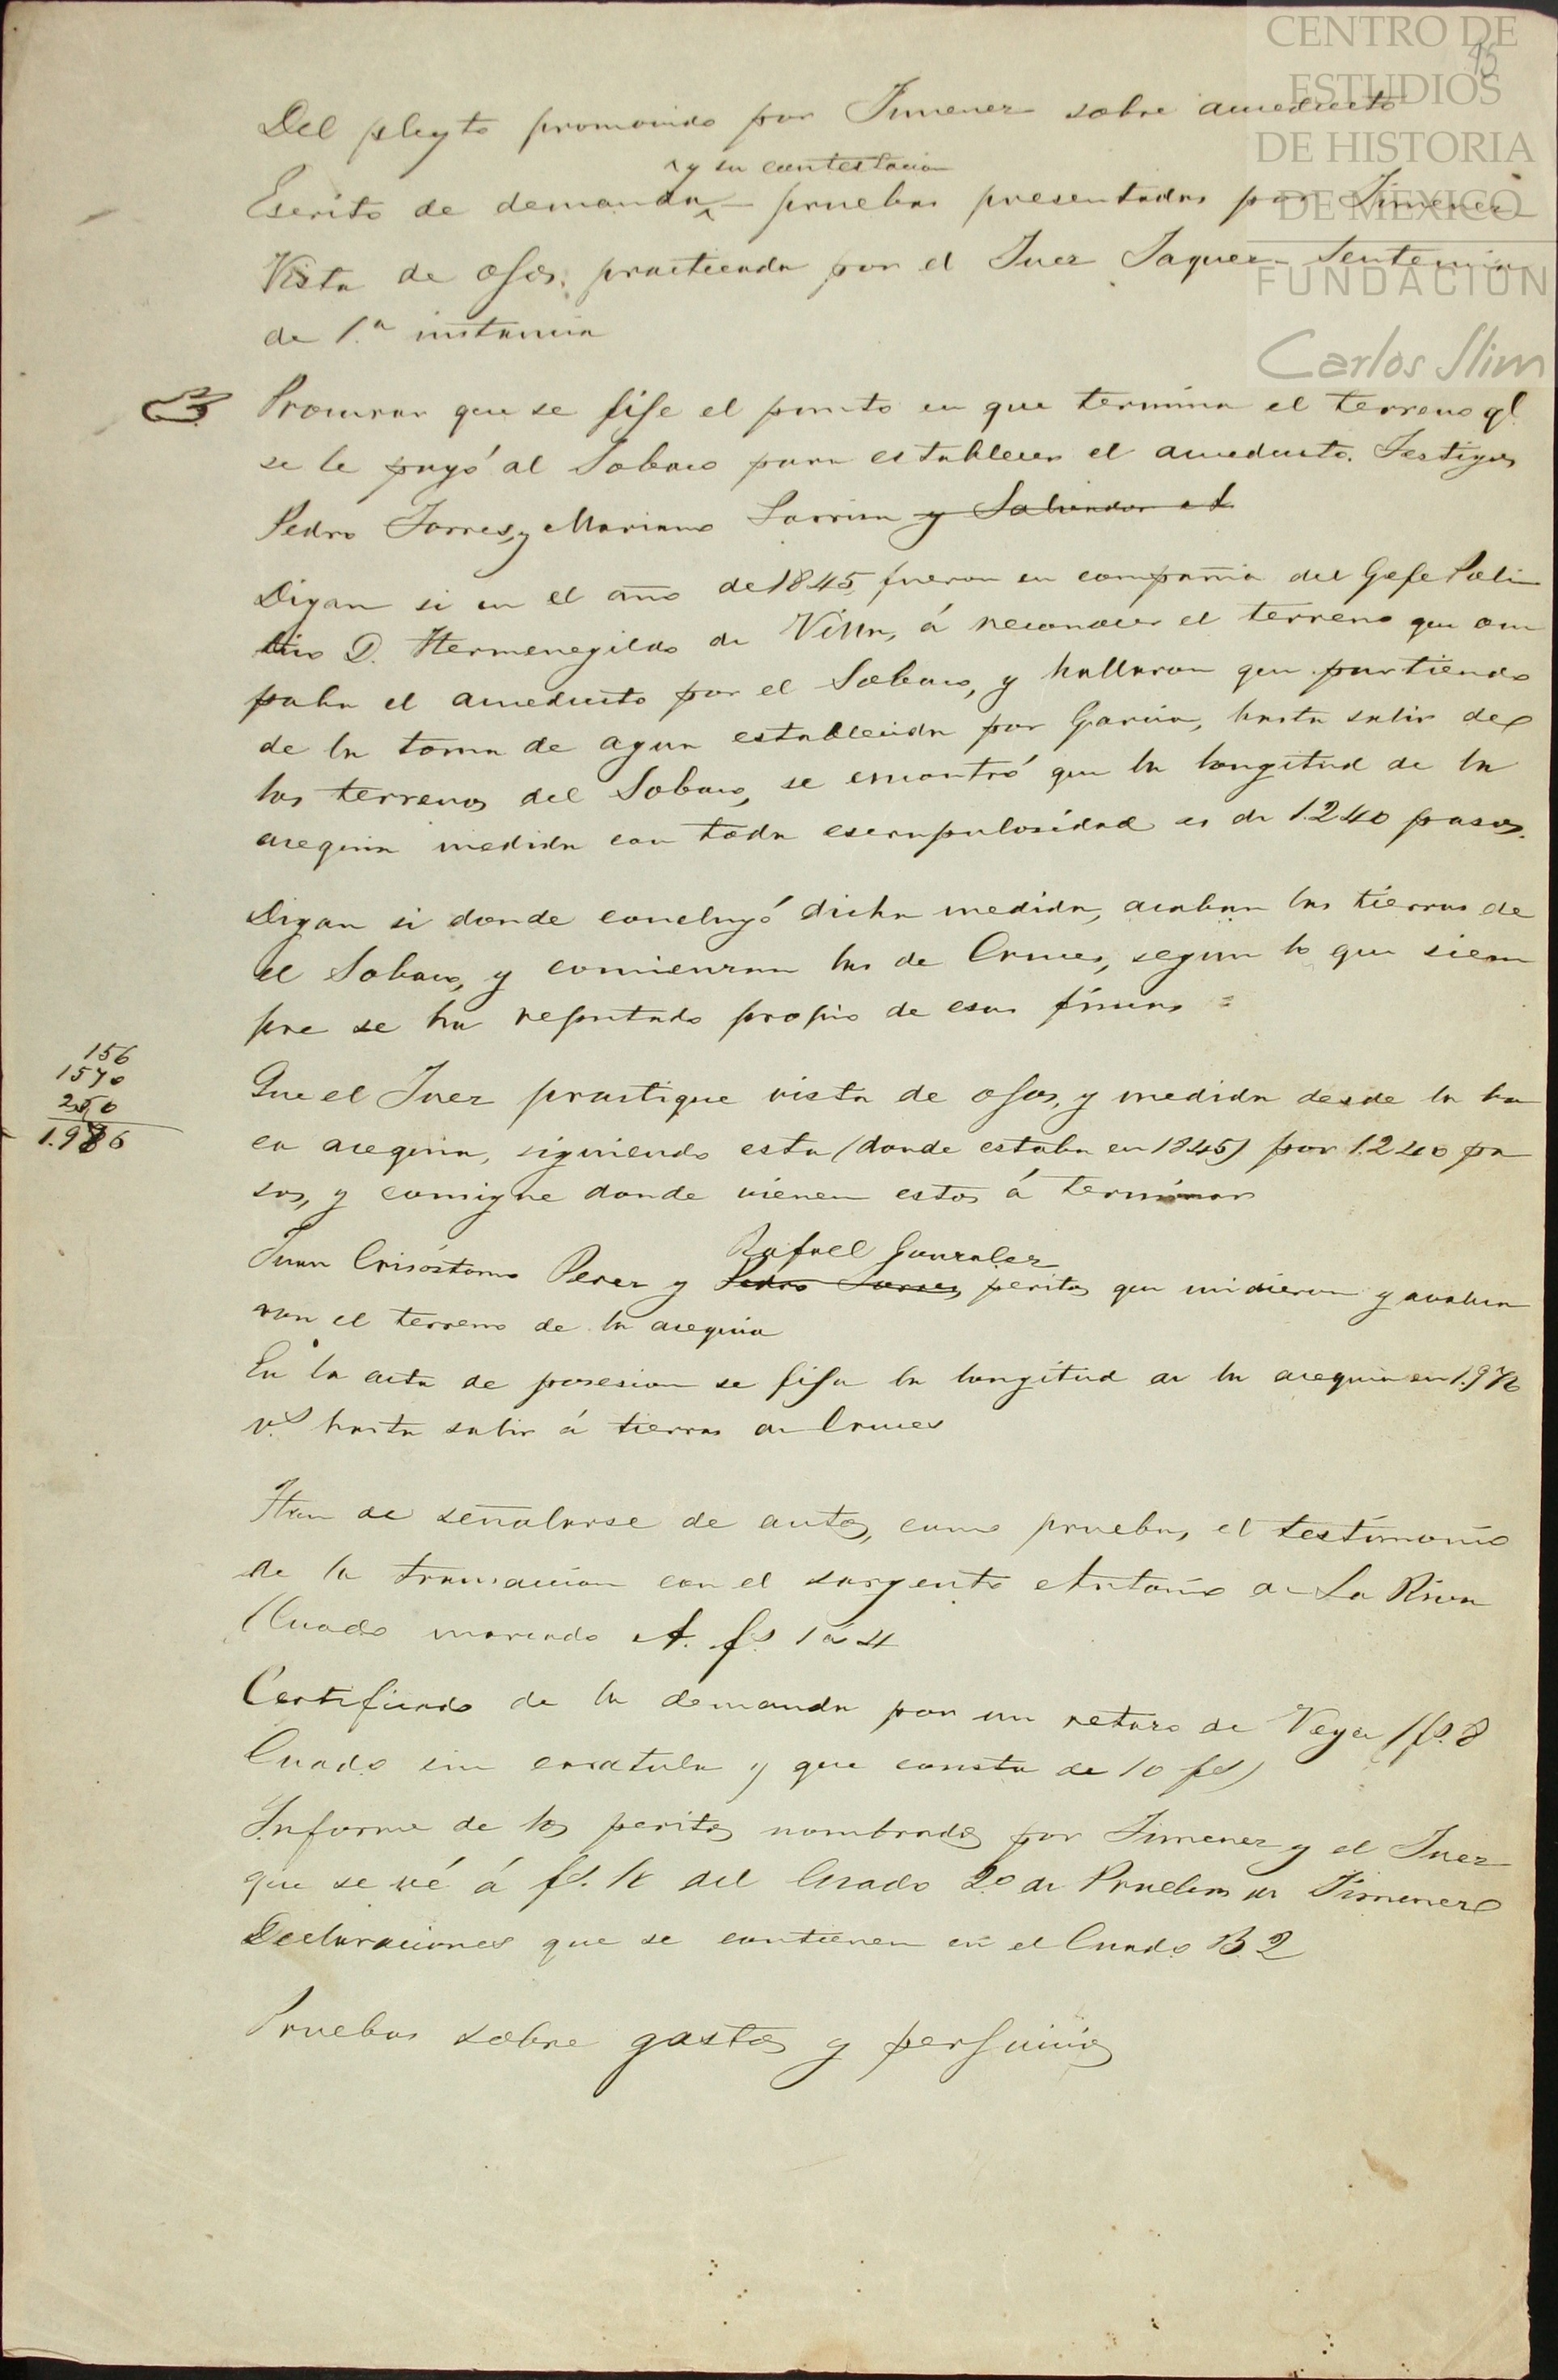 CENTRO DE
ESTUDIOS
DE HISTORIA
DE MEXICO
FUNDACION
Carlos Slim
Del pleyto promovido por Jimenez sobre acueducto
y su contestacion
Escrito de demanda – pruebas presentadas por Jimenez –
Vista de ojos, practicada por el Juez Jaquez – Sentencia
de 1.ª instancia
Procurar que se fije el punto en que termina el terreno q.
se le pagó al Sobaco para establecer el acueducto. Testigos
Pedro Torres, y Mariano Larriva y Salvador
Digan si en el año de 1845 fueron en compañia del Gefe Poli
tico D. Hermenegildo de Villa, á reconocer el terreno que ocu
paba el acueducto por el Sobaco, y hallaron que partiendo
de la toma de agua establecida por Garcia, hasta salir de
los terrenos del Sobaco, se encontró que la longitud de la
acequia medida con toda escrupulosidad es de 1.240 pasos.
Digan si donde concluyó dicha medida, acaban las tierras de
el Sobaco, y comienzan las de Cruces, segun lo que siem
pre se ha reputado propio de esas fincas =
156
1570
250
1.986
Que el Juez practique vista de ojos, y medida desde la bo
ca acequia, siguiendo esta (donde estaba en 1845) por 1.240 pa
sos, y consigne donde vienen estos á terminar
Rafael Gonzalez
Juan Crisóstomo Perez y Pedro Torres, peritos que midieron y avalua
ron el terreno de la acequia
En la acta de posesion se fija la longitud de la acequia en 1.976
v.s hasta salir á tierras de Cruces
Han de señalarse de autos, como pruebas, el testimonio
de la transaccion con el sargento Antonio de La Riva
(Cuad.o marcado A. f.s 1 á 4
Certificado de la demanda por un retazo de Vega (f.s 8
Cuad.o sin caratula y que consta de 10 f.s)
Informe de los peritos nombrados por Jimenez y el Juez
que se vé á f.s 18 del Cuad.o 2.o de Pruebas de Jimenez
Declaraciones que se contienen en el Cuad.o B. 2
Pruebas sobre gastos y perjuicios